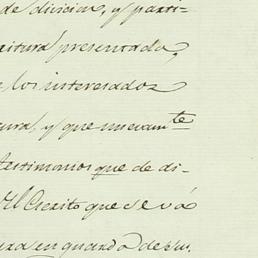 de division, y parti-
critura presentada,
e los interesados
tura, y que nuevamte
testimonios que de di-
El Escrito que se vá
tura en guarda de su.